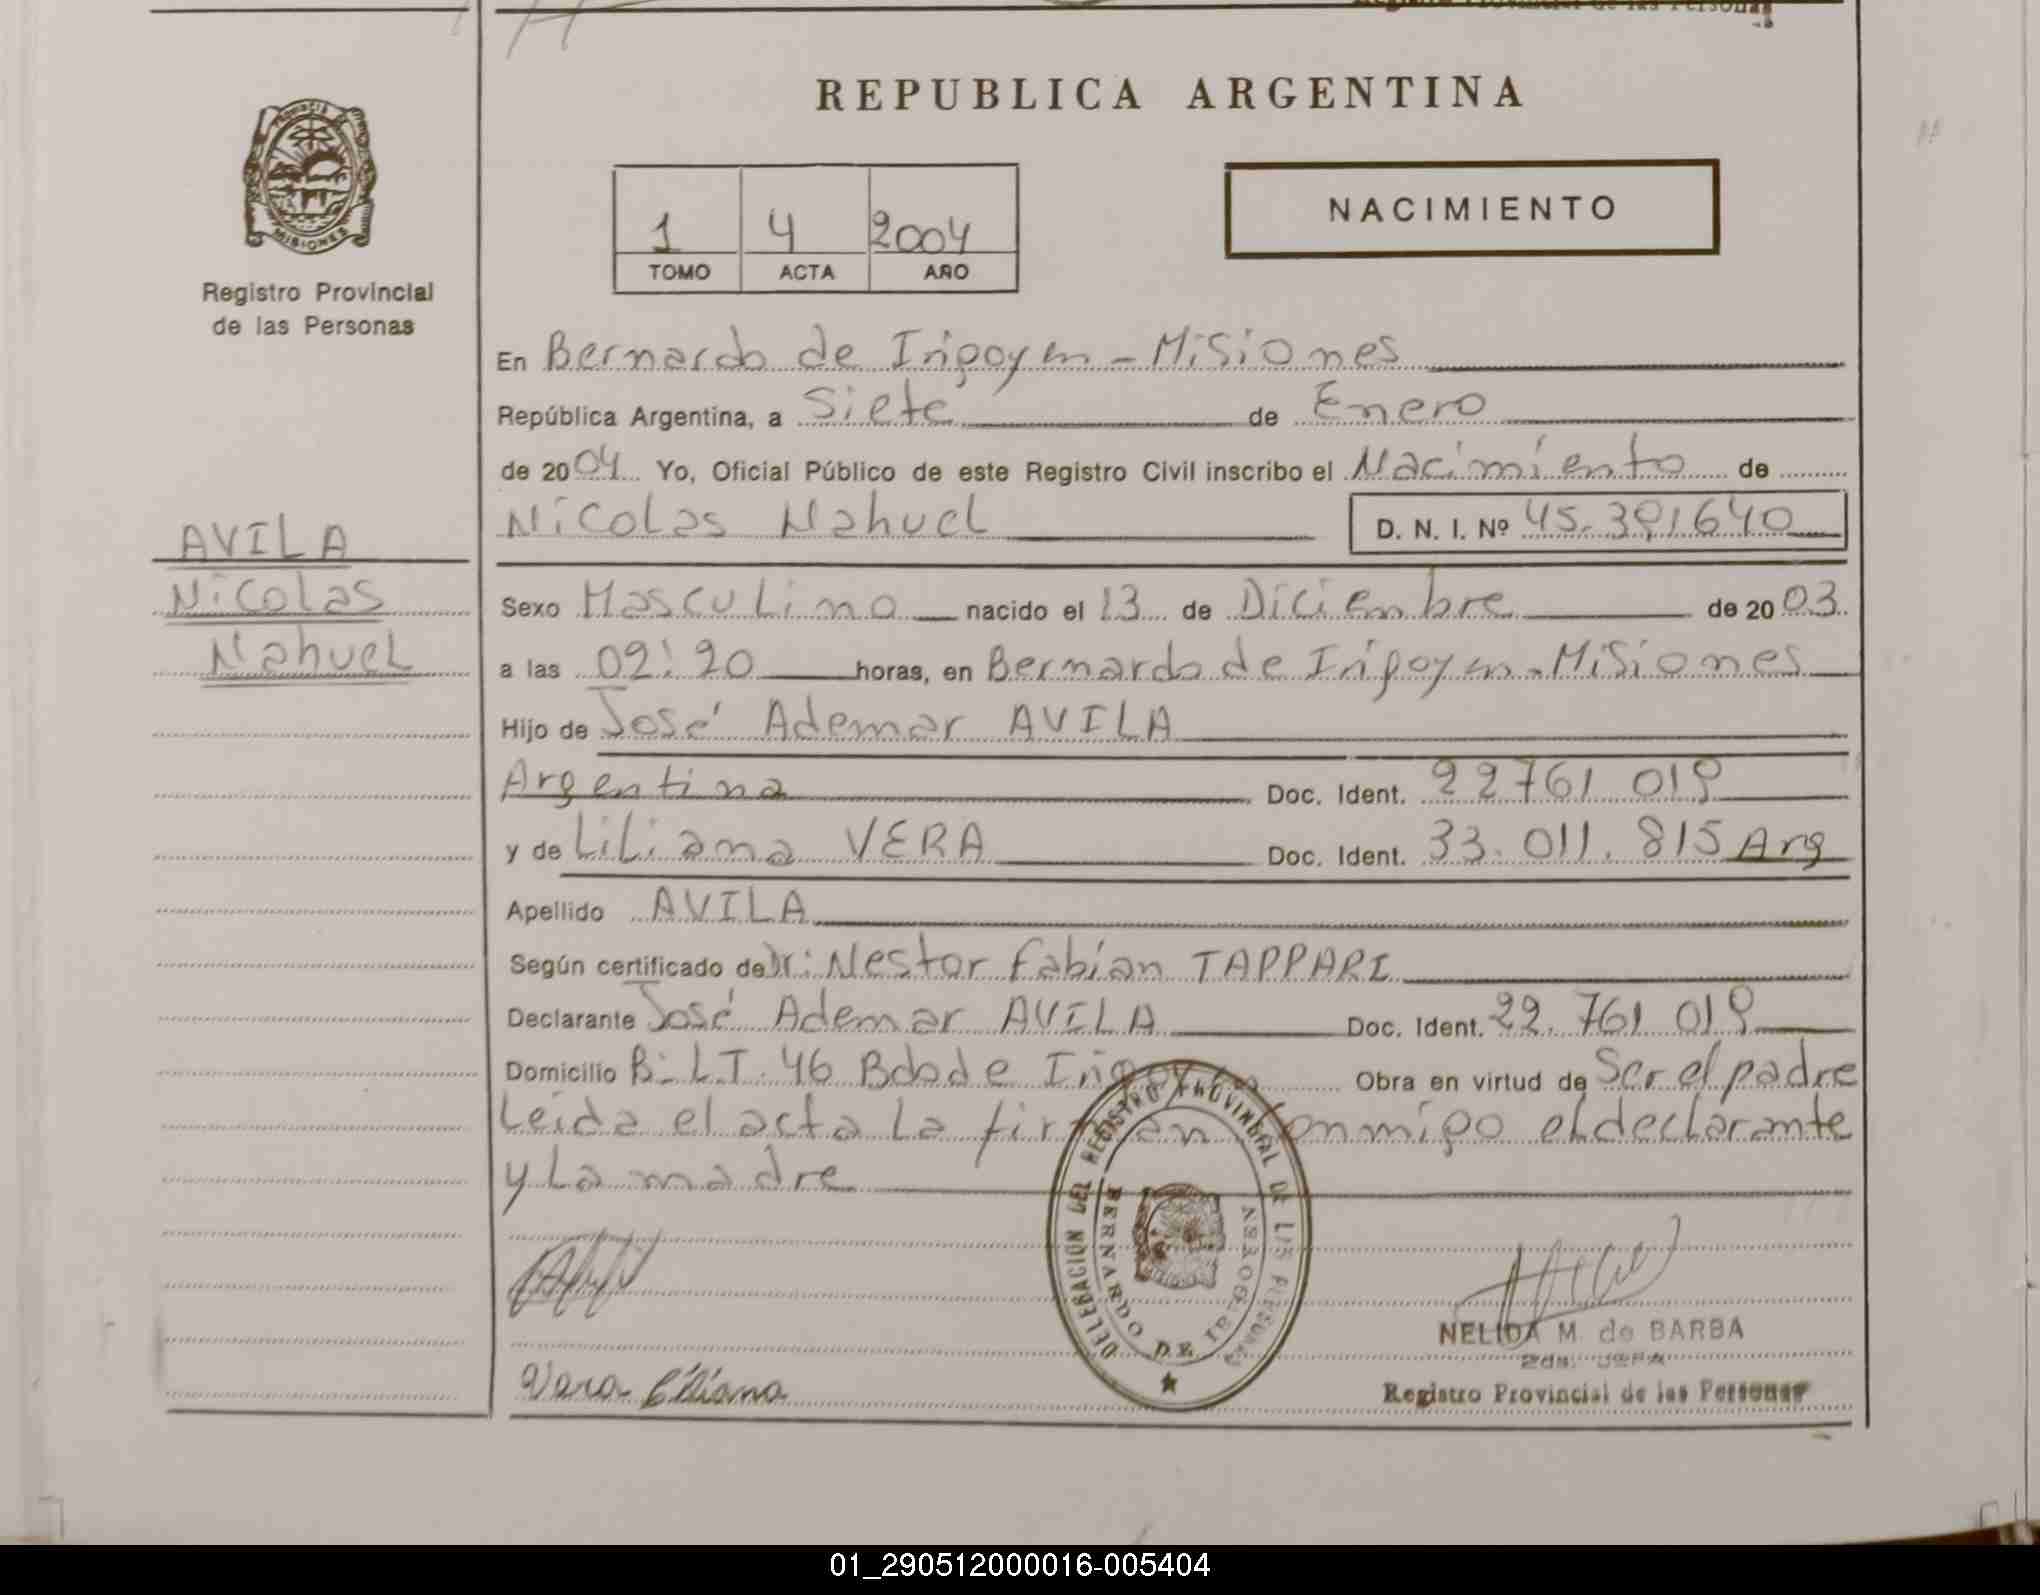 REPUBLICA ARGENTINA
PROVINCIA DE
MISIONES
Registro Provincial
de las Personas
1 4 2004
TOMO ACTA AÑO
NACIMIENTO
En Bernardo de Irigoyen - Misiones
República Argentina, a Siete de Enero
de 2004 Yo, Oficial Público de este Registro Civil inscribo el Nacimiento de
Nicolas Nahuel D. N. I. Nº 45.391640
AVILA
Nicolas
Nahuel
Sexo Masculino nacido el 13 de Diciembre de 2003
a las 02:20 horas, en Bernardo de Irigoyen - Misiones
Hijo de José Ademar AVILA
Argentina Doc. Ident. 22761 019
y de Liliana VERA Doc. Ident. 33.011.815 Arg
Apellido AVILA
Según certificado de Dr: Nestor Fabian TAPPARI
Declarante José Ademar AVILA Doc. Ident. 22.761 019
Domicilio B- LT. 46 Bdo de Irigoyen Obra en virtud de Ser el padre
Leida el acta la firman conmigo el declarante
y La madre
DELEGACION DEL REGISTRO PROVINCIAL DE LAS PERSONAS
BERNARDO DE IRIGOYEN
NELIDA M. de BARBA
Registro Provincial de las Personas
Vera Liliana
01_290512000016-005404